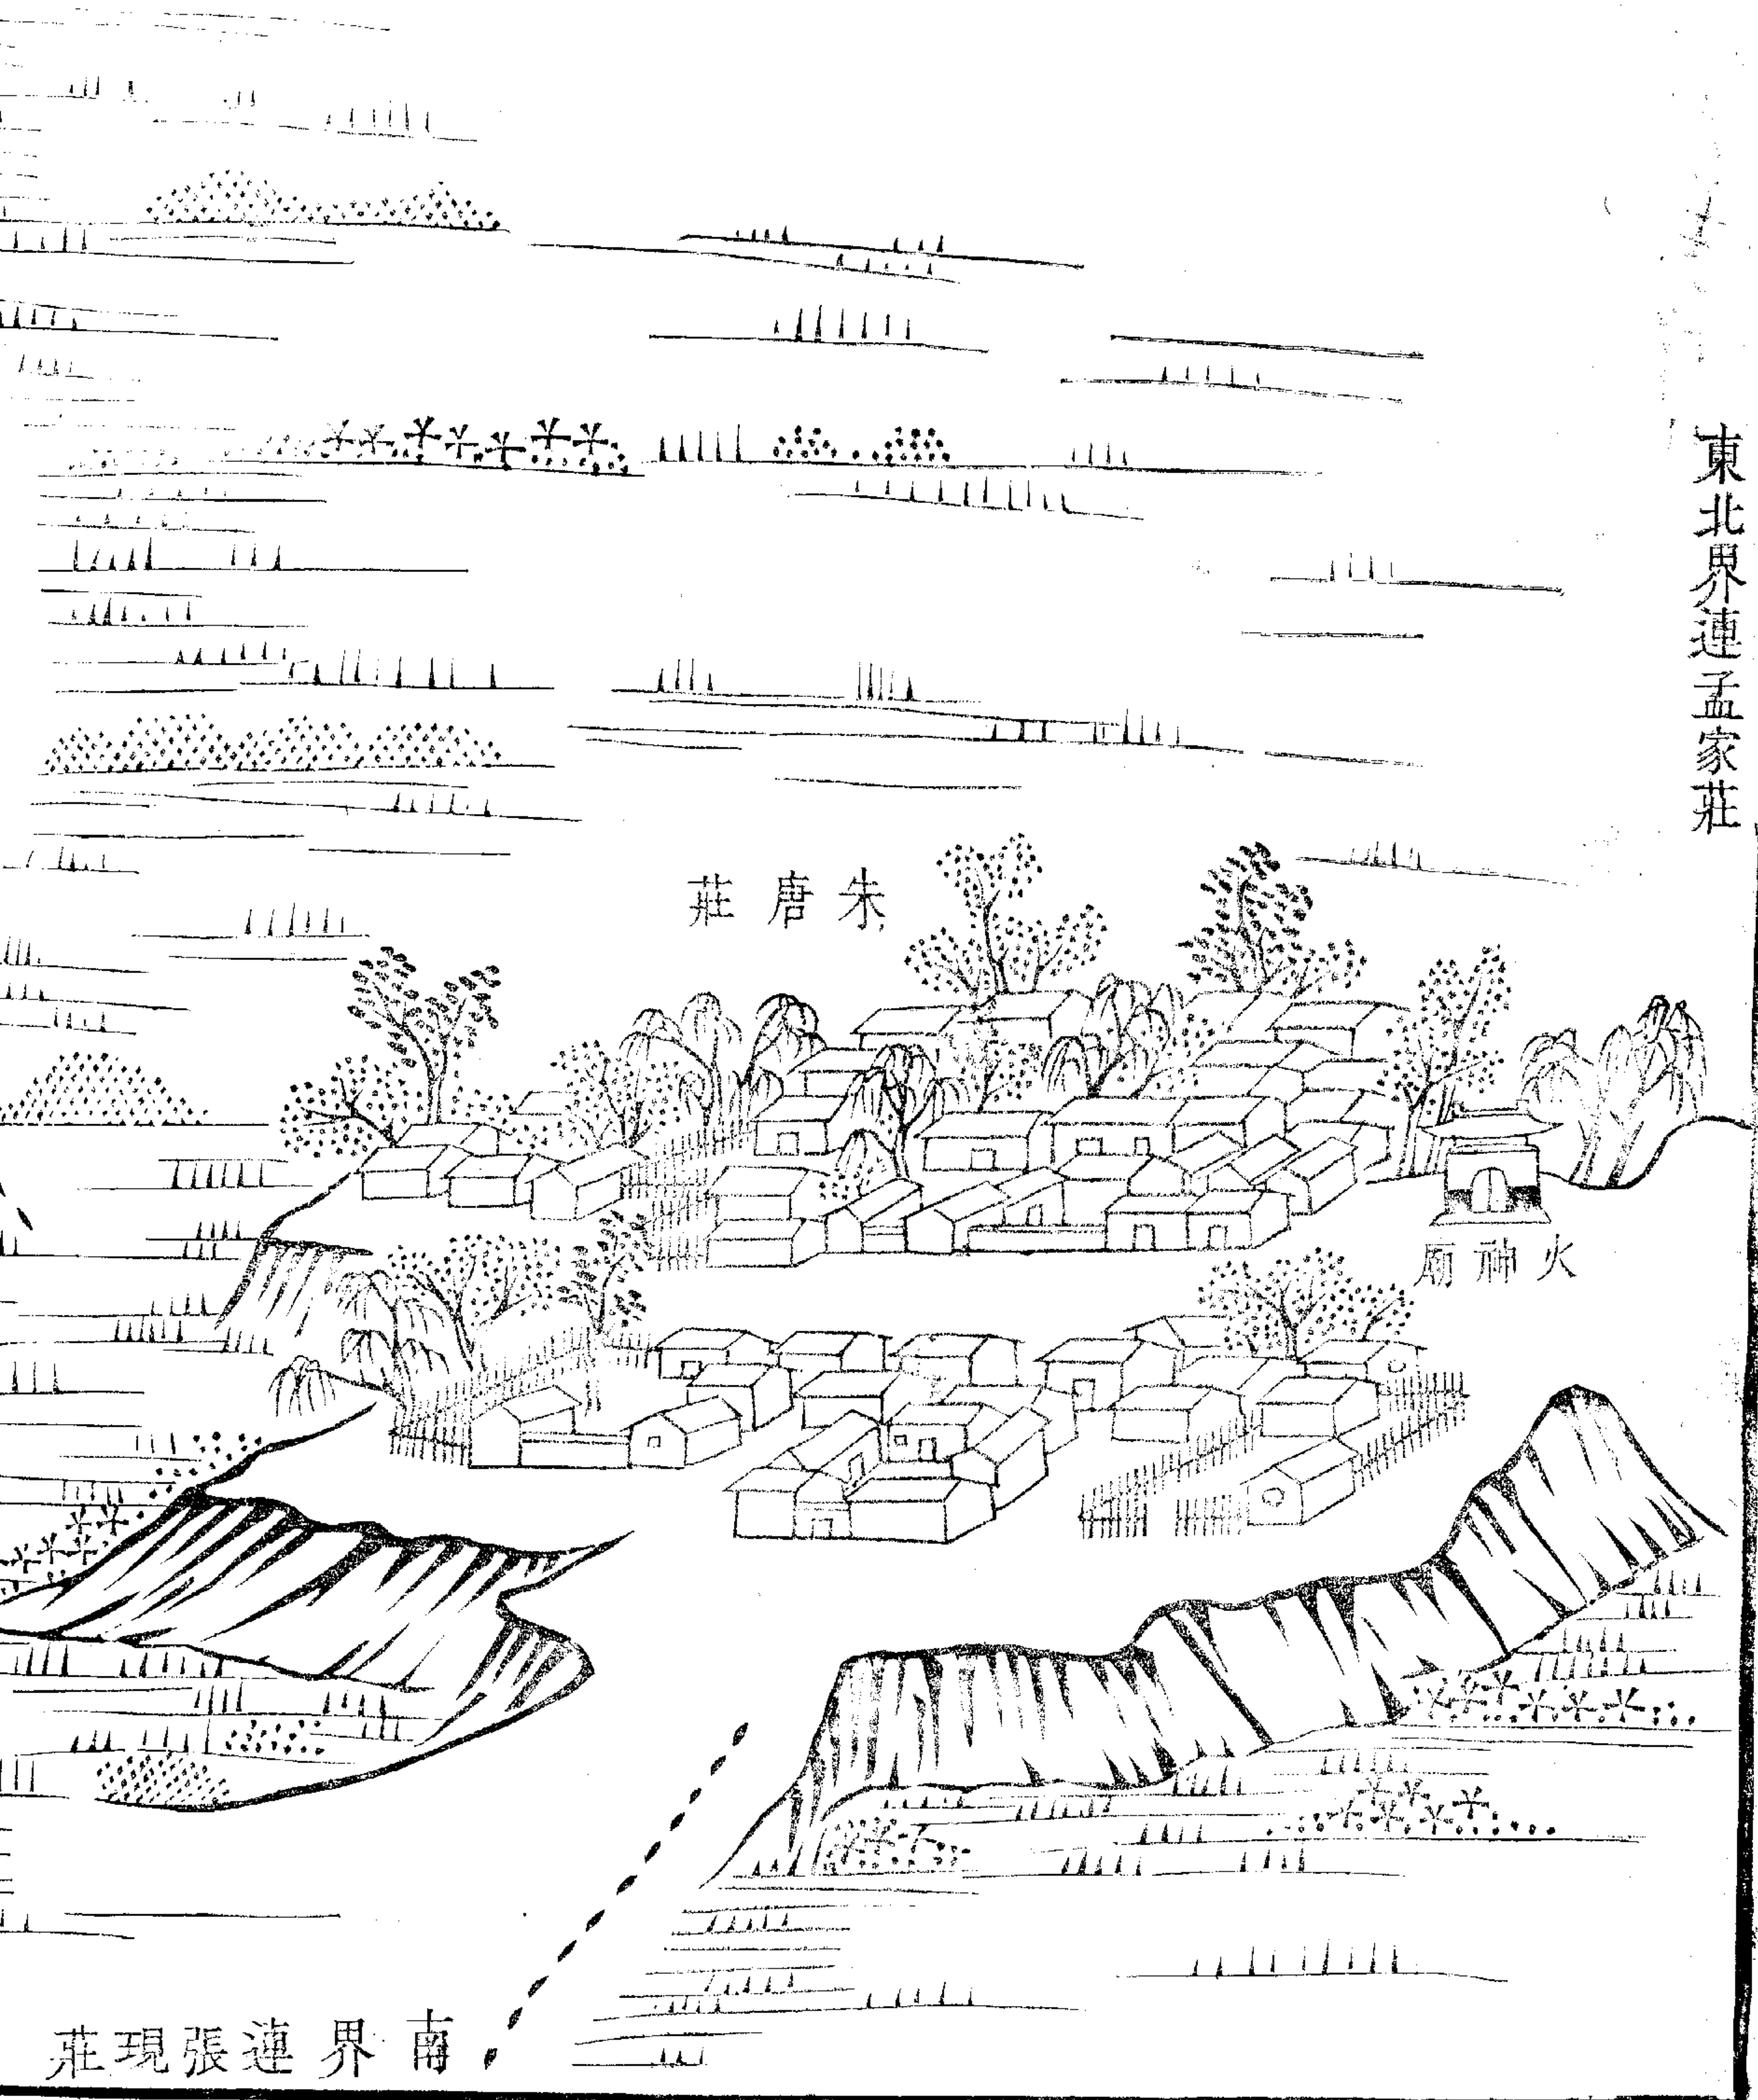 東北界連孟家莊
朱唐莊
火神廟
南界連張現莊